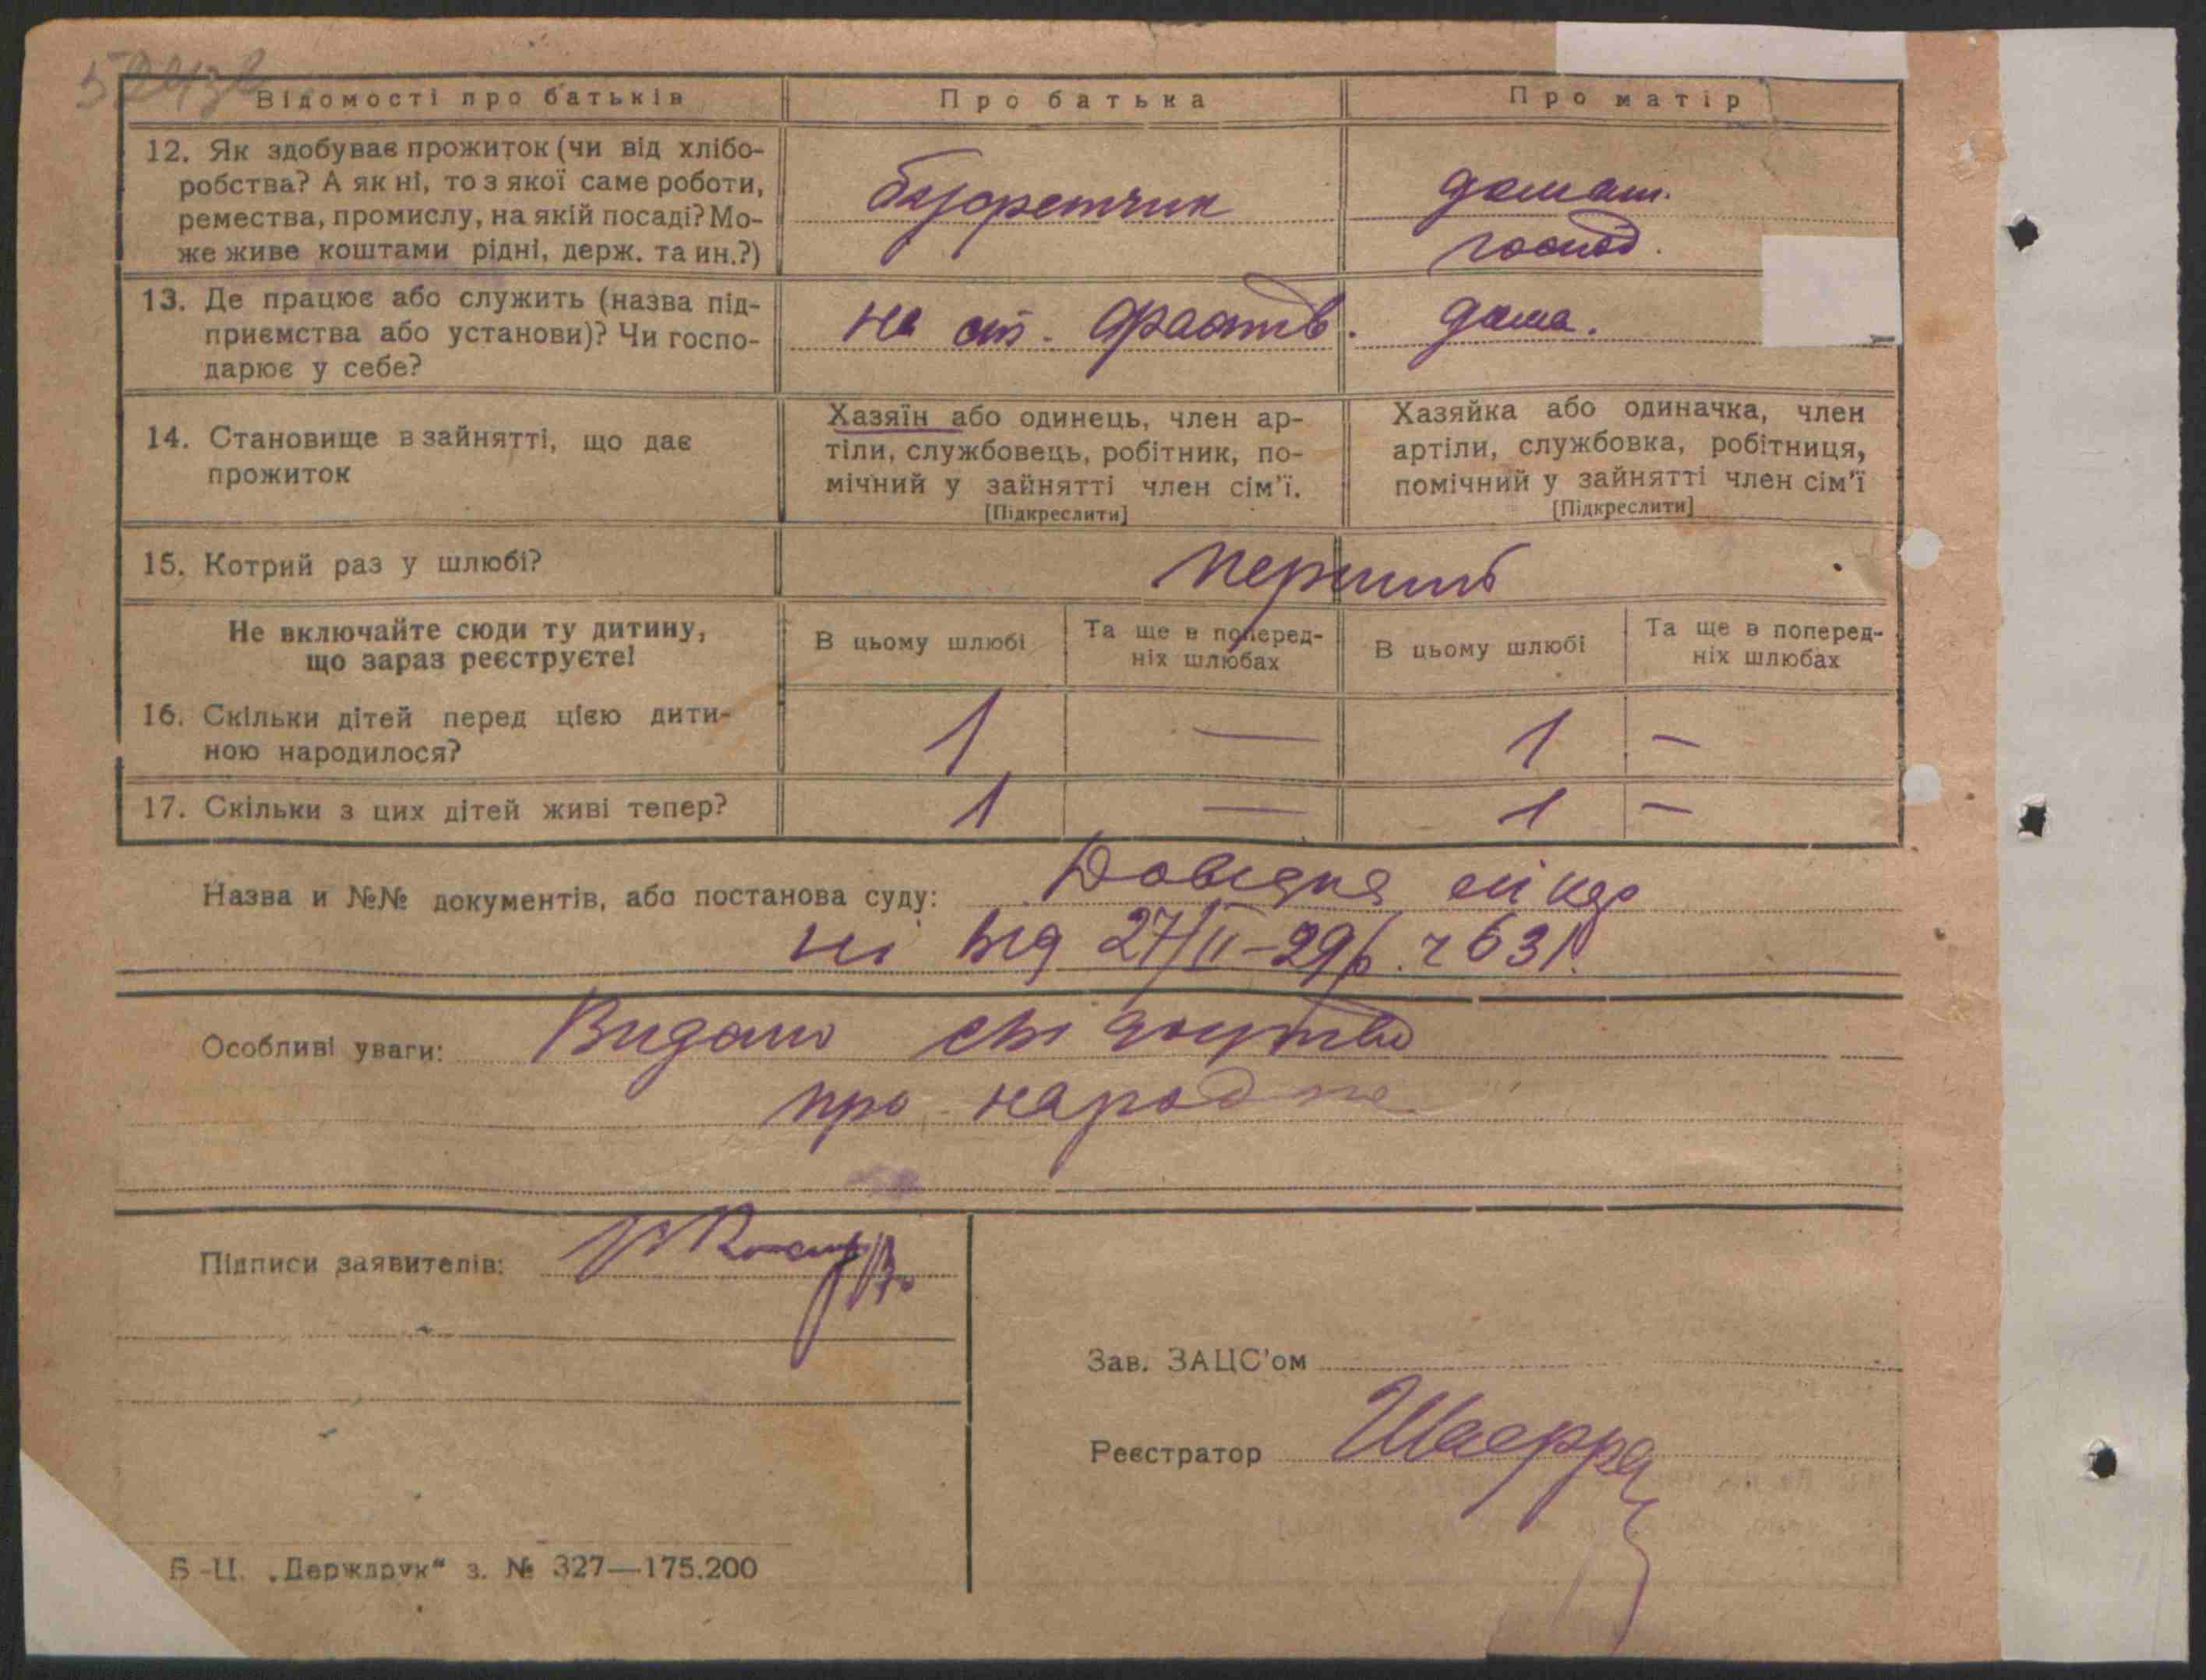 52432
Відомості про батьків
Про батька
Про матір
12. Як здобуває прожиток (чи від хлібо-
робства? А як ні, то з якої саме роботи,
ремества, промислу, на якій посаді? Мо-
же живе коштами рідні, держ. та ин.?)
буфретчик
домаш.
господ.
13. Де працює або служить (назва під-
приємства або установи)? Чи госпо-
дарює у себе?
на ст. Фастів.
дома.
14. Становище в зайнятті, що дає
прожиток
Хазяїн або одинець, член ар-
тіли, службовець, робітник, по-
мічний у зайнятті член сім’ї.
[Підкреслити]
Хазяйка або одиначка, член
артіли, службовка, робітниця,
помічний у зайнятті член сім’ї
[Підкреслити]
15. Котрий раз у шлюбі?
перший
Не включайте сюди ту дитину,
що зараз реєструєте!
В цьому шлюбі
Та ще в поперед-
ніх шлюбах
В цьому шлюбі
Та ще в поперед-
ніх шлюбах
16. Скільки дітей перед цією дити-
ною народилося?
1 — 1 —
17. Скільки з цих дітей живі тепер?
1 — 1 —
Назва и №№ документів, або постанова суду: Довідка лікар
ні від 27/II-29р. ч 631.
Особливі уваги: Видано свідоцтво
про народж
Підписи заявителів:
Зав. ЗАЦС’ом
Реєстратор
Б-Ц. „Держдрук“ з. № 327—175.200